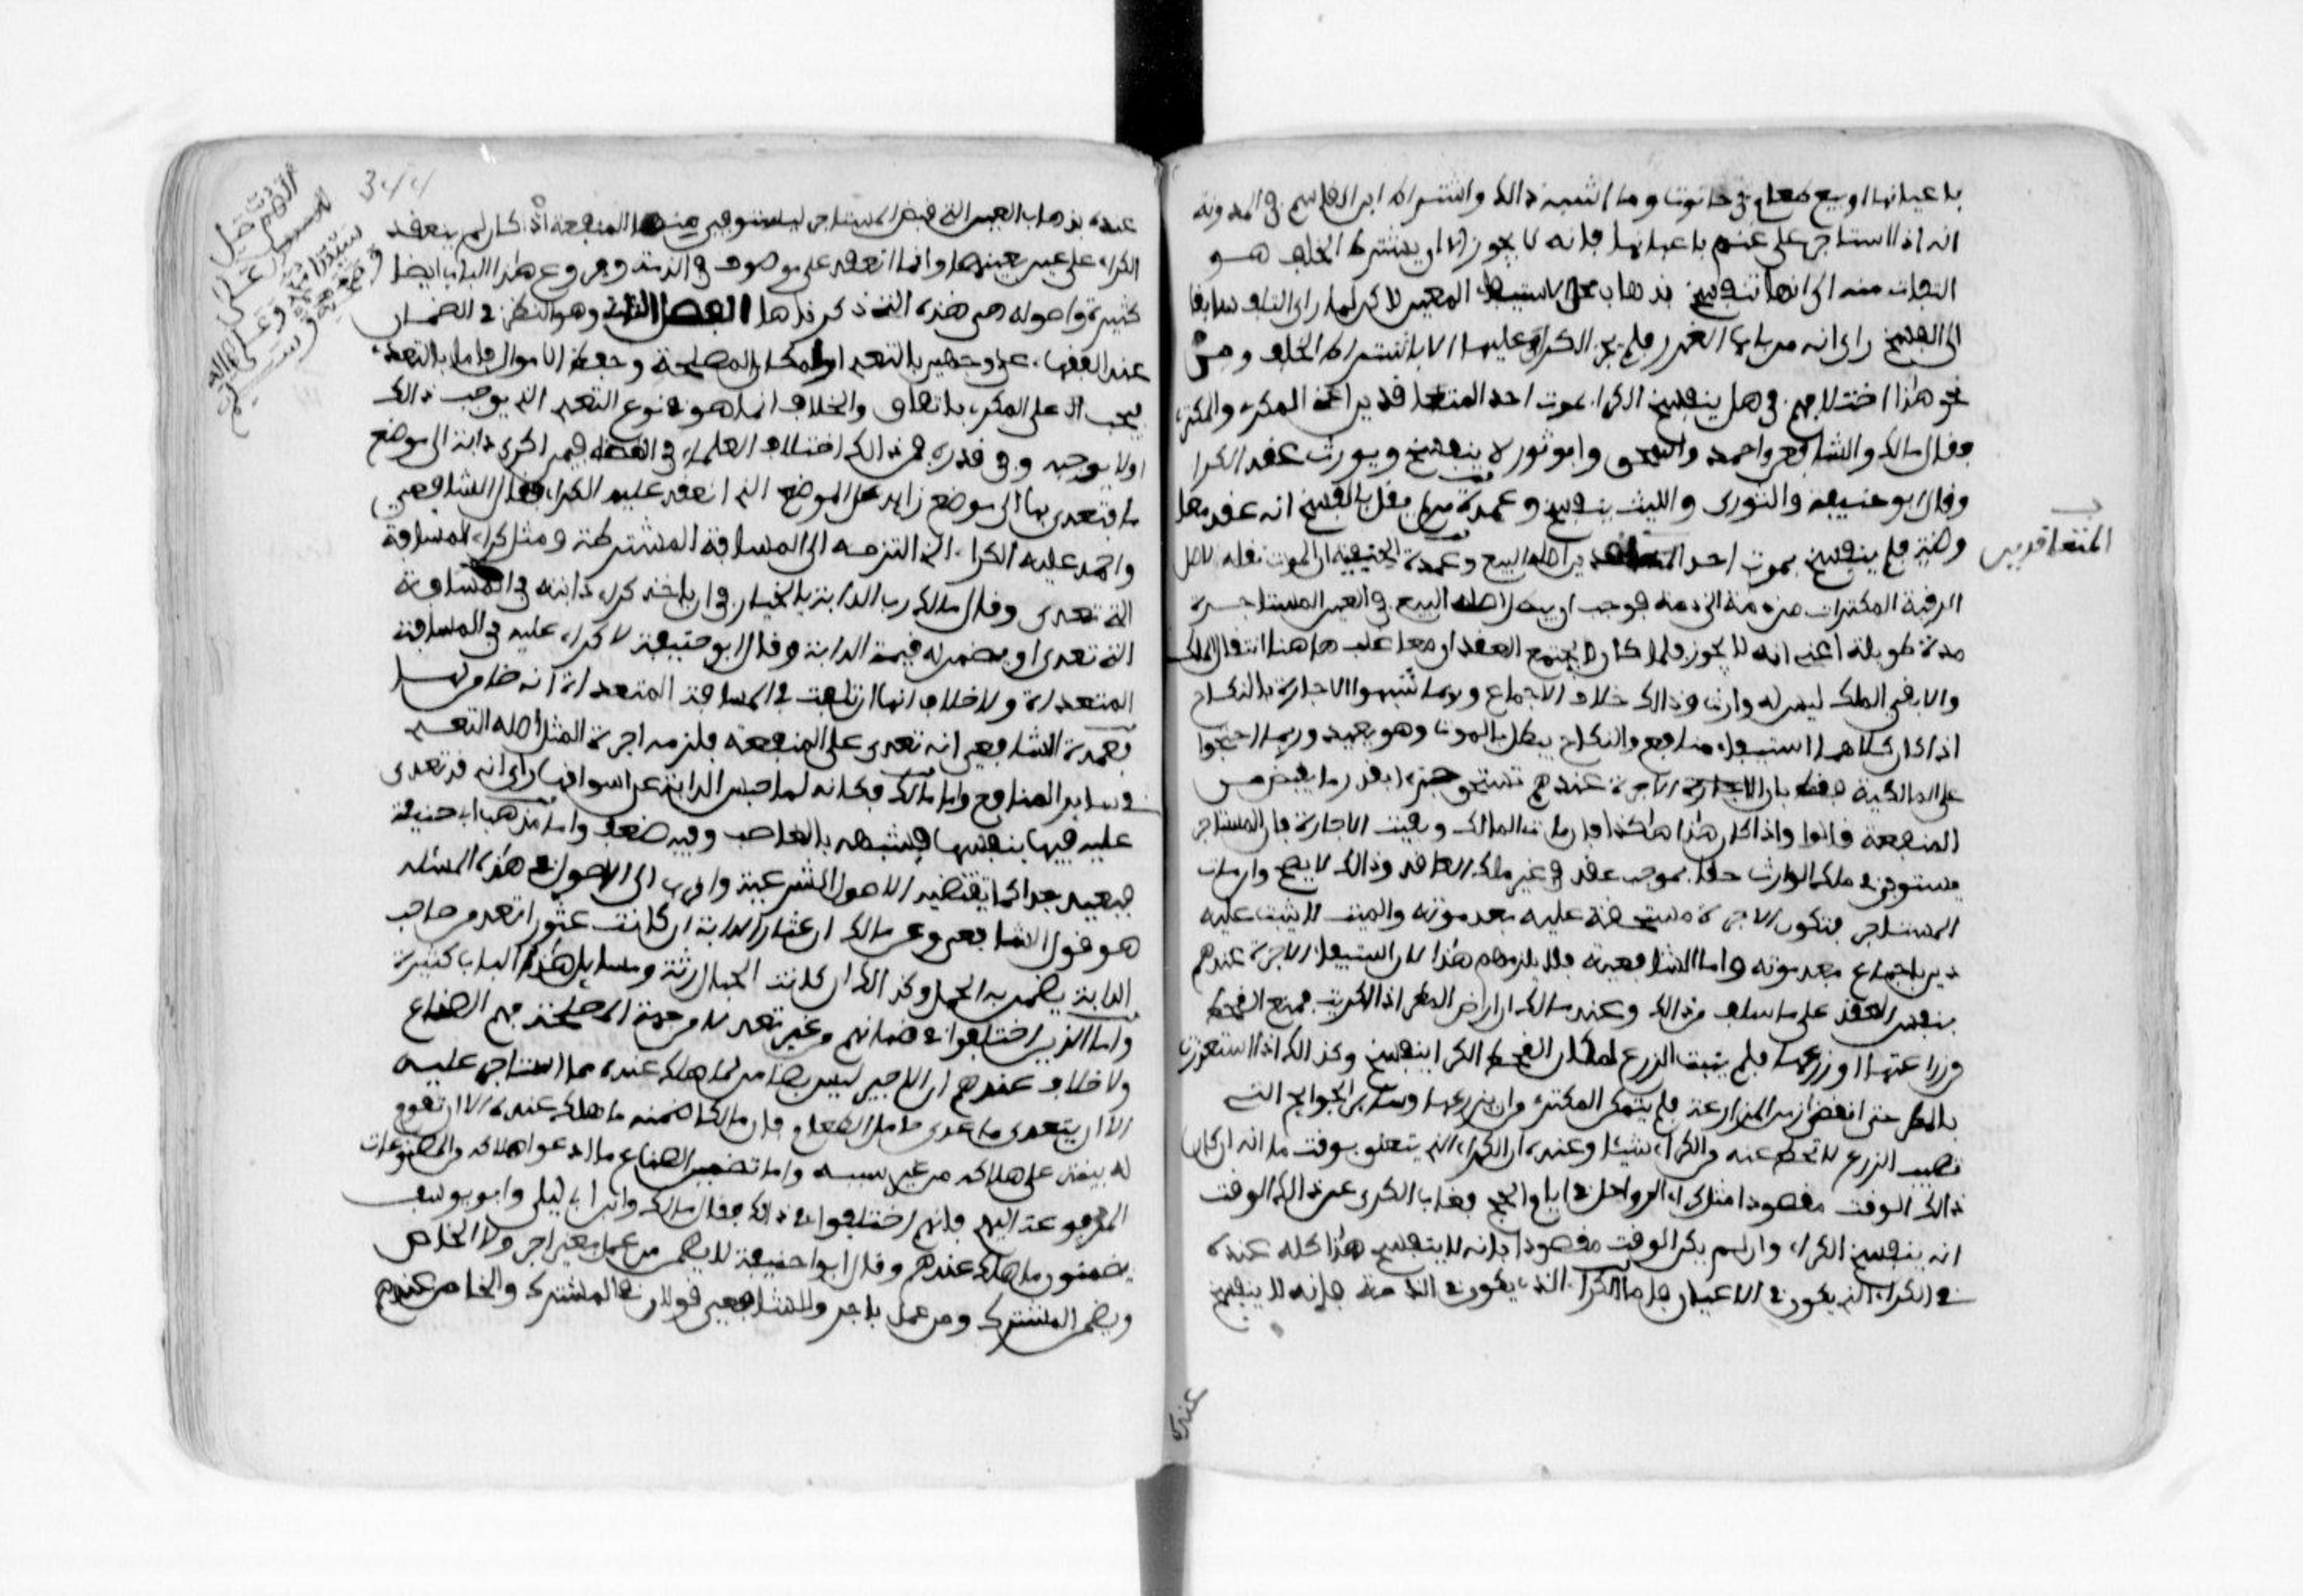 باعيانها او بيع طعام في حانوت وما اشبه ذالك واشتراط ابن القاسم في المدونة
انه اذا استاجر على غنم باعيانها فانه لا يجوز الا ان يشترط الخلف هـو
التفات منه الى انها تنفسخ بذهاب محل الاستيفاء المعين لاكن لما راى التلف سايقا
الى الفسخ راى انه من باب الغرر فلم يجز الكراء عليها الا باشتراط الخلف ومن
نحو هذا اختلافهم في هل ينفسخ الكراء بموت احد المتعاقدين اعني المكري والمكتري
فقال مالك والشافعي واحمد واسحق وابو ثور لا ينفسخ ويورث عقد الكرا
وقال ابو حنيفة والثوري والليث ينفسخ وعمدة من لم يقل بالفسخ انه عقد معا
وضة فلم ينفسخ بموت احد المتعاقدين اصله البيع وعمدة الحنفية ان الموت نقلة لاصل
المتعاقدين
الرقبة المكترات من ذمة الى ذمة فوجب ان يبطل اصله البيع في العين المستاجرة
مدة طويلة اعني انه لا يجوز فلما كان لا يجتمع العقدان معا غلب هاهنا انتقال الملك
والا بقي الملك ليس له وارث وذالك خلاف الاجماع وربما شبهوا الاجارة بالنكاح
اذ كان كلاهما استيفاء منافع والنكاح يبطل بالموت وهو بعيد وربما احتجوا
على المالكية فقط بان الاجرة عندهم تستحق جزءا بقدر ما يقبض من
المنفعة قالوا واذا كان هذا هاكذا فان مات المالك وبقيت الاجارة فان المستاجر
يستوفي في ملك الوارث حقا بموجب عقد في غير ملك العاقد وذالك لا يصح وان مات
المستاجر فتكون الاجرة مستحقة عليه بعد موته والميت لا يثبت عليه
دين باجماع بعد موته واما الشافعية فلا يلزمهم هذا لان استيفاء الاجرة عندهم
بنفس العقد على ما سلف من ذالك وعند مالك ان ارض المطر اذا اكريت فمنع القحط
من زراعتها او زرعها فلم ينبت الزرع لمكان القحط الكرا ينفسخ وكذالك اذا استعذرت
بالمطر حتى انقضى زمن الزراعة فلم يتمكن المكتري من ان يزرعها وساير الجوايح التي
تصيب الزرع لا تحط عنه من الكراء شيئا وعنده ان الكراء الذي يتعلق بوقت ما انه ان كان
ذالك الوقت مقصودا مثل كراء الرواحل في ايام الحج فغاب الكري عن ذالك الوقت
انه ينفسخ الكراء وان لم يكن الوقت مقصودا فانه لا ينفسخ هذا كله عنده
في الكراء الذي يكون في الاعيان فاما الكراء الذي يكون في الذمة فانه لا ينفسخ
عنده
344
عنده بذهاب العين التي قبض المستاجر ليستوفي منها المنفعة اذ كان لم ينعقد
الكراء على عين بعينها وانما انعقد على موصوف في الذمة وفروع هذا الباب ايضا
كثيرة واصوله هي هذه التي ذكرناها الفصل الثاني وهو النظر في الضمان
عند الفقهاء على وجهين بالتعدي او لمكان المصلحة وحفظ الاموال فاما بالتعدي
فيجب على المكري باتفاق والخلاف انما هو في نوع التعدي الذي يوجب ذالك
او لا يوجبه وفي قدره فمن ذالك اختلاف العلماء في القضاء فيمن اكرى دابة الى موضع
ما فتعدى بها الى موضع زايد على الموضع الذي انعقد عليه الكراء فقال الشافعي
واحمد عليه الكراء الذي التزمه الى المسافة المشترطة ومثل كراء المسافة
التي تعدى وقال مالك رب الدابة بالخيار في ان ياخذ كراء دابته في المسافة
التي تعدى او يضمن له قيمة الدابة وقال ابو حنيفة لا كراء عليه في المسافة
المتعداة ولا خلاف انها ان تلفت في المسافة المتعداة انه ضامن لها
فعمدة الشافعي انه تعدى على المنفعة فلزمه اجرة المثل اصله التعدي
في ساير المنافع واما مالك فكانه لما حبس الدابة عن اسواقها راى انه قد تعدى
عليه فيها بنفسها فشبهه بالغاصب وفيه ضعف واما مذهب ابي حنيفة
فبعيد جدا كما تقتضيه الاصول الشرعية واقرب الى الاصول في هذه المسئلة
هو قول الشافعي وعن مالك ان عثار الدابة ان كانت عثورا تعد من صاحب
الدابة يضمن به الحمل وكذالك ان كانت الحبال رثة ومسايل هذا الباب كثيرة
واما الذين اختلفوا في ضمانهم من غير تعد الا من جهة المصلحة فهم الصناع
ولا خلاف عندهم ان الاجير ليس بضامن لما هلك عنده مما استاجر عليه
الا ان يتعدى ما عدى حامل الطعام فان مالكا ضمنه ما هلك عنده الا ان تقوم
له بينة على هلاكه من غير سببه واما تضمين الصناع ما ادعوا هلاكه من المصنوعات
المرفوعة اليهم فانهم اختلفوا في ذالك فقال مالك وابن ابي ليلى وابو يوسف
يضمنون ما هلك عندهم وقال ابو حنيفة لا يضمن من عمل بغير اجر ولا الخاص
ويضمن المشترك ومن عمل باجر وللشافعي قولان في المشترك والخاص عندهم
اللهم صل
على
سيدنا محمد وعلى اله
وصحبه وسلم